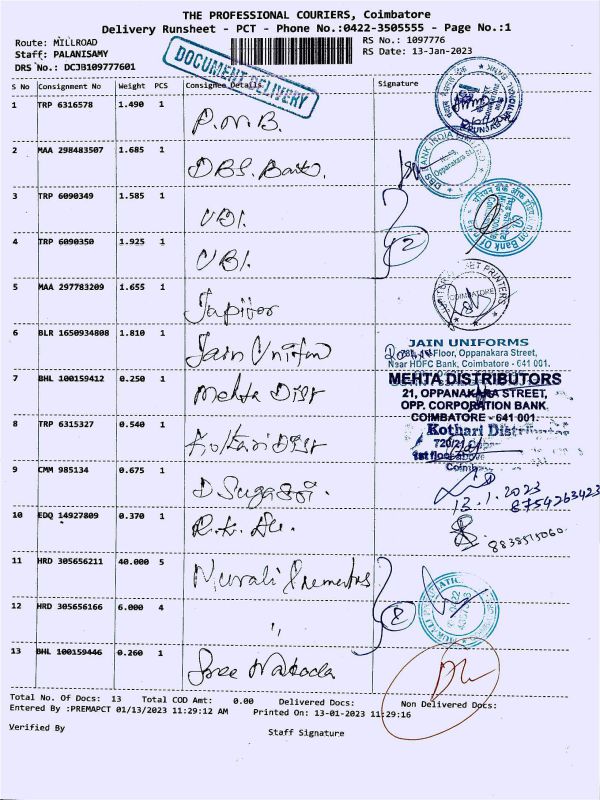 THE PROFESSIONAL COURIERS, Coimbatore
Delivery Runsheet - PCT - Phone No.:0422-3505555 - Page No.:1
Route: MILLROAD RS No.: 1097776
Staff: PALANISAMY RS Date: 13-Jan-2023
DRS No.: DCJB109777601
DOCUMENT DELIVERY
S No Consignment No Weight PCS Consignee Details Signature
1 TRP 6316578 1.490 1 P.N.B.
2 MAA 298483507 1.685 1 DBS. Bank.
DBS BANK INDIA LIMITED
Oppanakara St.
3 TRP 6090349 1.585 1 UBI.
4 TRP 6090350 1.925 1 UBI. 2
Union Bank Of India
5 MAA 297783209 1.655 1 Jupiter
JUPITER OFFSET PRINTERS
COIMBATORE
6 BLR 1650934808 1.810 1 Jain Uniform
JAIN UNIFORMS
Floor, Oppanakara Street,
Near HDFC Bank, Coimbatore - 641 001.
7 BHL 100159412 0.250 1 Mehta Dist
MEHTA DISTRIBUTORS
21, OPPANAKARA STREET,
OPP. CORPORATION BANK
COIMBATORE - 641 001.
8 TRP 6315327 0.540 1 Kothari Dist
Kothari Distributors
720/21
1st floor above
Coimb
9 CMM 985134 0.675 1 D Sugasri.
13.1.2023
8754263423
10 EDQ 14927809 0.370 1 R.K.
8838515060
11 HRD 305656211 40.000 5 Murali
12 HRD 305656166 6.000 4 " 8
13 BHL 100159446 0.260 1 Sree Nakoda
Total No. Of Docs: 13 Total COD Amt: 0.00 Delivered Docs: Non Delivered Docs:
Entered By :PREMAPCT 01/13/2023 11:29:12 AM Printed On: 13-01-2023 11:29:16
Verified By Staff Signature